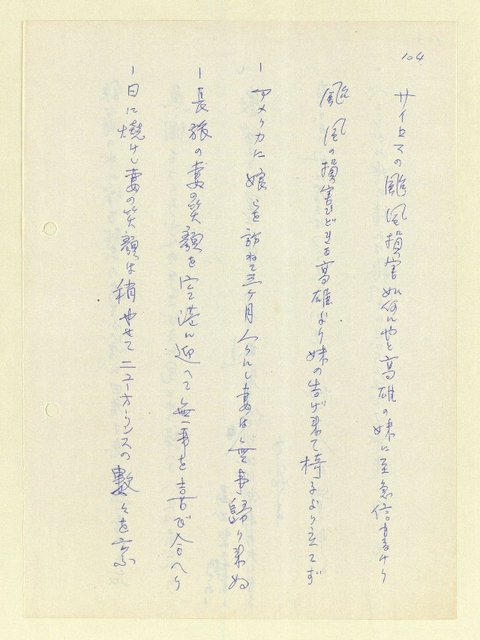 104
サイルマの颱風損害如何にやと高雄の妹に至急信書けり
颱風の損害ひどしと高雄より妹の告げ来て椅子より立てず
一アメリカに娘らを訪ねて三ヶ月
妻は無事歸り来ぬ
一長旅の妻の笑顔を空港に迎へて無事を喜び合へり
一日に燒けし妻の笑顔は稍やせてニューオーリンズの数々を言ふ